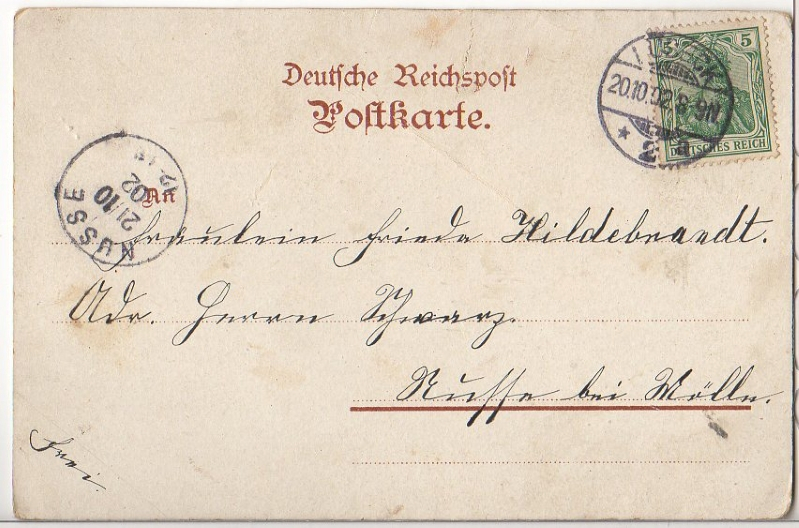 Deutsche Reichspost
Postkarte.
5 5
DEUTSCHES REICH
LÜBECK
20.10.02 8-9N.
* 2 a
NUSSE
21/10
02
An
Fräulein Frieda Hildebrandt.
Adr. Herrn Schwarz.
Nusse bei Mölln.
frei.